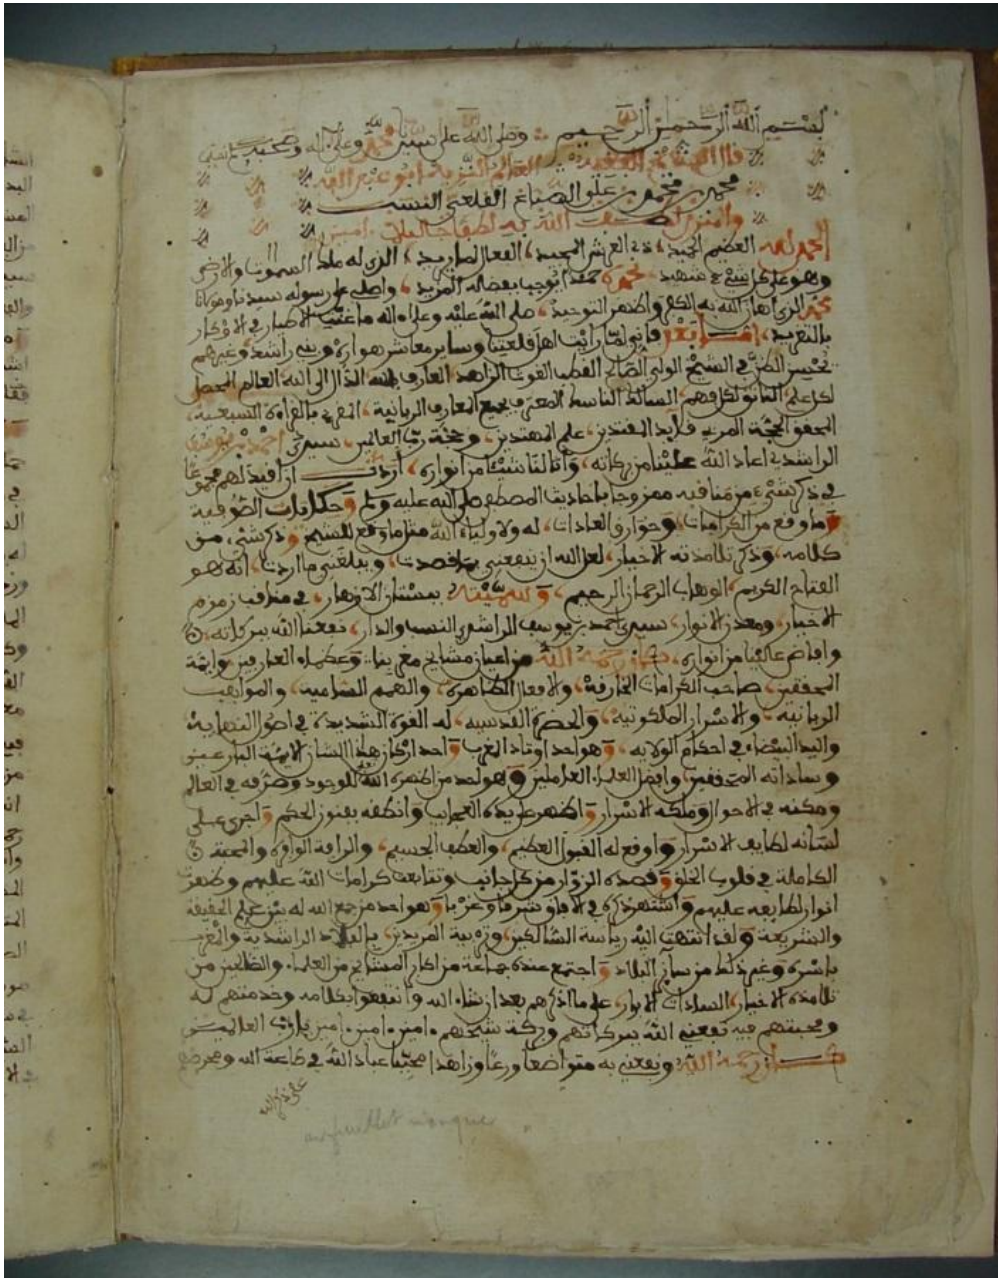 بسم الله الرحمن الرحيم وصلى الله على سيدنا محمد وعلى اله وصحبه
قال الشيخ الفقيه العالم النزيه ابو عبد الله
محمد بن محمد بن علي الصباغ القلعي النسب
لطف الله به
الحمد لله العظيم الحميد، ذي العرش المجيد، الفعال لما يريد، الذي له ملك السموات والارض
وهو على كل شيء شهيد، نحمده حمدا نوجب بفضله المزيد، واصلي على رسوله سيدنا ومولانا
محمد الذي اهان الله به الكفر واظهر التوحيد، صلى الله عليه وعلى ءاله ما غنت الاطيار في الاوكار
بالتغريد، اما بعد فاني لما رايت اهل قلعتنا وساير معاشر هوارة وبني راشد وغيرهم
تحسن الظن في الشيخ الولي الصالح القطب الغوث الزاهد العارف بالله الدال الى الله العالم المحصل
لكل علم الفايق لكل فهم السالك الناسك المعترف بجميع المعارف الربانية، المقرئ بالقراءة السبعية،
المحقق الحجة المربي علم المهتدين، وحجة رب العالمين، سيدي احمد بن يوسف
الراشدي اعاد الله علينا من بركاته، وانالنا شيئا من انواره، اردت ان اقيد لهم مجموعا
في ذكر شيء من مناقبه ممزوجا باحاديث المصطفى صلى الله عليه وسلم وحكايات الصوفية
وما وقع من الكرامات، وخوارق العادات، له ولاولياء الله مثل ما وقع للشيخ وذكر شيء من
كلامه، وذكر تلامذته الاخيار، لعل الله ان ينفعني بما قصدت، ويبلغني ما اردت، انه هو
الفتاح الكريم، الوهاب الرحمان الرحيم، وسميته ببستان الازهار، في مناقب زمزم
الاخيار، ومعدن الانوار، سيدي احمد بن يوسف الراشدي النسب والدار، نفعنا الله ببركاته،
وافاض علينا من انواره، كان رحمه الله من اعيان مشايخ مغربنا، وعظماء العارفين وايمة
المحققين، صاحب الكرامات الخارقة، والافعال الظاهرة، والهمم السامية، والمواهب
الربانية، والاسرار الملكوتية، والحضرة القدسية، له القوة الشديدة في اصول النهاية
واليد البيضاء في احكام الولاية، وهو احد اوتاد المغرب واحد اركان هذا الشان
وساداته المحققين وافضل العلماء العاملين وهو احد من اظهره الله للوجود وصرفه في العالم
ومكنه في الاحوال وملكه الاسرار واظهر على يده العجايب وانطقه بفنون الحكم واجرى على
لسانه لطايف الاسرار واوقع له القبول العظيم، والعطف الجسيم، والرافة الوافرة والمحبة
الكاملة في قلوب الخلق وقصده الزوار من كل جانب وتتابعت كرامات الله عليهم وظهرت
انوار لطايفه عليهم واشتهر ذكره في الافاق شرقا وغربا وهو احد من جمع الله له بين علم الحقيقة
والشريعة ولقد انتهت اليه رياسة السالكين، وتربية المريدين، بالبلاد الراشدية والمغرب
باسره وغير ذلك من ساير البلاد واجتمع عنده جماعة من اكابر المشايخ من العلماء والصالحين من
تلامذته الاخيار، السادات الابرار، على ما اذكرهم بعد ان شاء الله وانتفعوا بكلامه وخدمتهم له
ومحبتهم فيه نفعني الله ببركاتهم وبركة شيخهم امين امين امين يا رب العالمين
كان رحمه الله ونفعني به متواضعا ورعا وزاهدا محببا عباد الله في طاعة الله
على ذكر الله
un feuillet manque